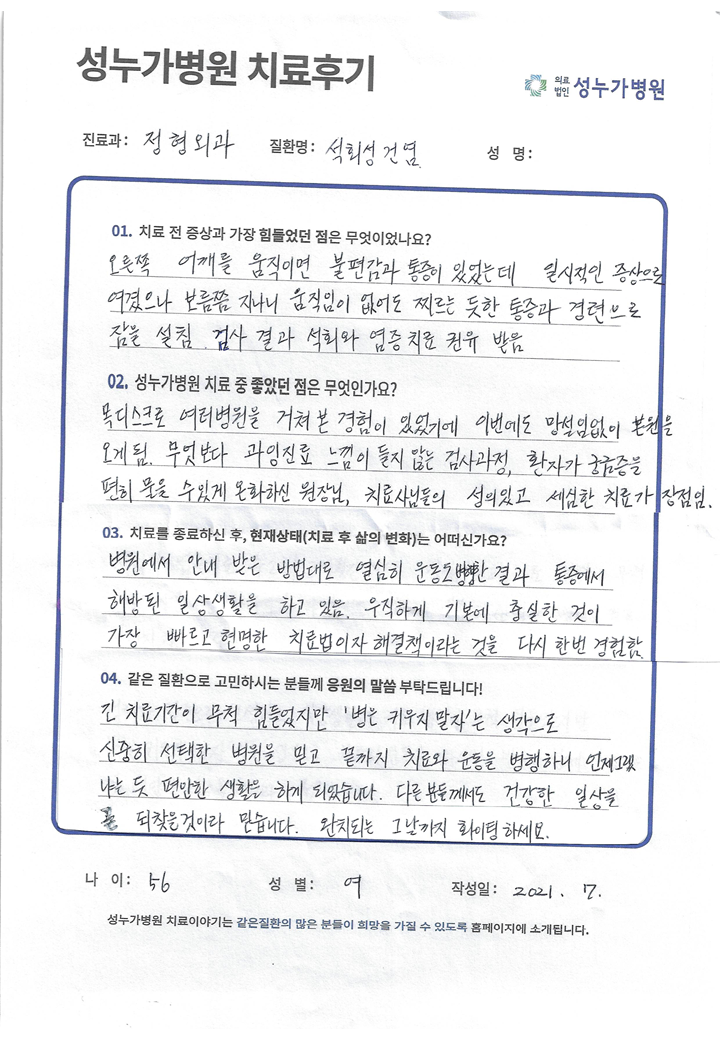 성누가병원 치료후기
의료
법인 성누가병원
진료과: 정형외과 질환명: 석회성건염 성 명:
01. 치료 전 증상과 가장 힘들었던 점은 무엇이었나요?
오른쪽 어깨를 움직이면 불편감과 통증이 있었는데 일시적인 증상으로
여겼으나 보름쯤 지나니 움직임이 없어도 찌르는 듯한 통증과 경련으로
잠을 설침. 검사 결과 석회와 염증치료 권유 받음
02. 성누가병원 치료 중 좋았던 점은 무엇인가요?
목디스크로 여러병원을 거쳐본 경험이 있었기에 이번에도 망설임없이 본원을
오게됨. 무엇보다 과잉진료 느낌이 들지 않는 검사과정, 환자가 궁금증을
편히 물을 수있게 온화하신 원장님, 치료사님들의 성의있고 세심한 치료가 장점임.
03. 치료를 종료하신 후, 현재상태(치료 후 삶의 변화)는 어떠신가요?
병원에서 안내 받은 방법대로 열심히 운동도 한 결과 통증에서
해방된 일상생활을 하고 있음. 우직하게 기본에 충실한 것이
가장 빠르고 현명한 치료법이자 해결책이라는 것을 다시 한번 경험함.
04. 같은 질환으로 고민하시는 분들께 응원의 말씀 부탁드립니다!
긴 치료기간이 무척 힘들었지만 '병은 키우지 말자'는 생각으로
신중히 선택한 병원을 믿고 끝까지 치료와 운동을 병행하니 언제그랬
냐는 듯 편안한 생활을 하게 되었습니다. 다른분들께서도 건강한 일상을
되찾을것이라 믿습니다. 완치되는 그날까지 화이팅하세요.
나 이: 56 성 별: 여 작성일: 2021. 7.
성누가병원 치료이야기는 같은질환의 많은 분들이 희망을 가질 수 있도록 홈페이지에 소개됩니다.